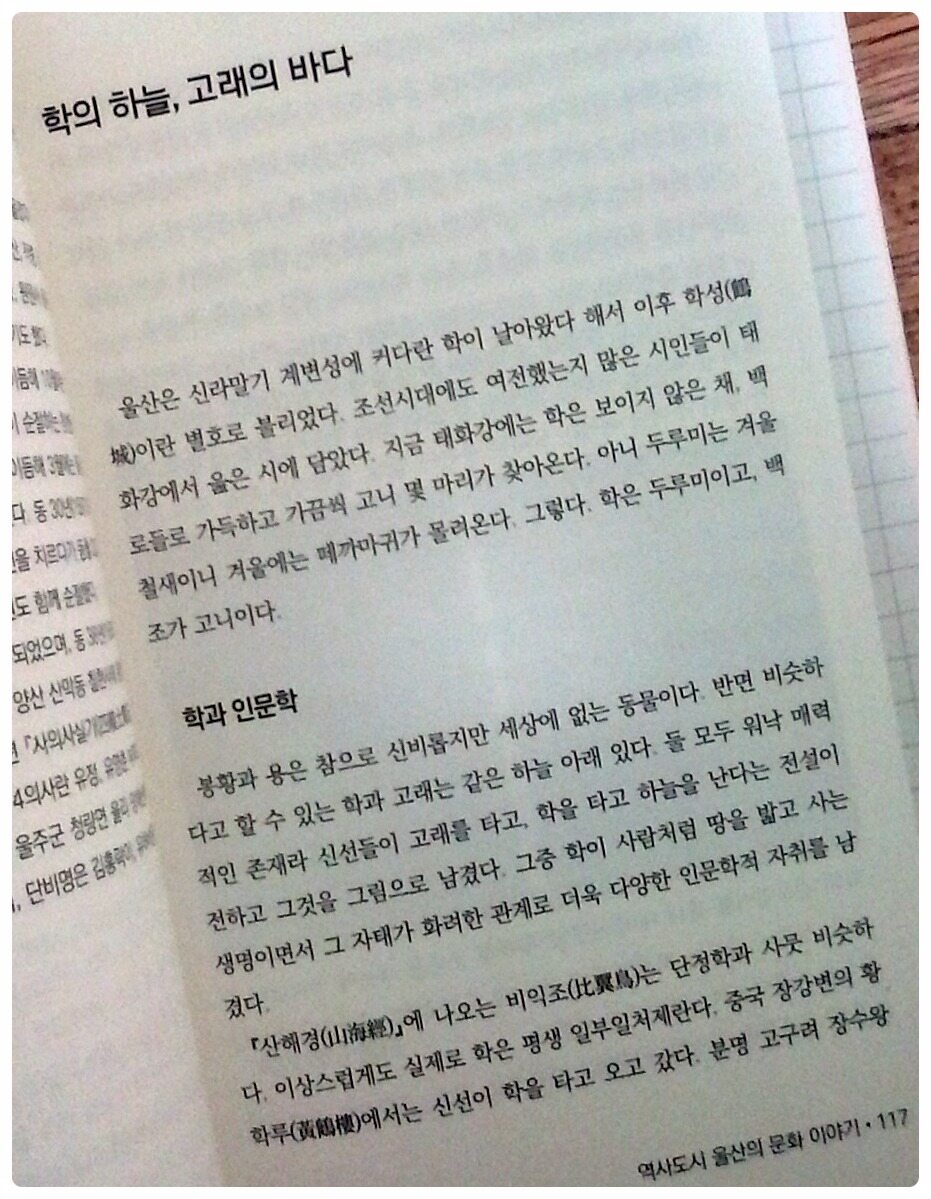 학의 하늘, 고래의 바다
울산은 신라말기 계변성에 커다란 학이 날아왔다 해서 이후 학성(鶴
城)이란 별호로 불리었다. 조선시대에도 여전했는지 많은 시인들이 태
화강에서 읊은 시에 담았다. 지금 태화강에는 학은 보이지 않은 채, 백
로들로 가득하고 가끔씩 고니 몇 마리가 찾아온다. 아니 두루미는 겨울
철새이니 겨울에는 떼까마귀가 몰려온다. 그렇다. 학은 두루미이고, 백
조가 고니이다.
학과 인문학
봉황과 용은 참으로 신비롭지만 세상에 없는 동물이다. 반면 비슷하
다고 할 수 있는 학과 고래는 같은 하늘 아래 있다. 둘 모두 워낙 매력
적인 존재라 신선들이 고래를 타고, 학을 타고 하늘을 난다는 전설이
전하고 그것을 그림으로 남겼다. 그중 학이 사람처럼 땅을 밟고 사는
생명이면서 그 자태가 화려한 관계로 더욱 다양한 인문학적 자취를 남
겼다.
『산해경(山海經)』에 나오는 비익조(比翼鳥)는 단정학과 사뭇 비슷하
다. 이상스럽게도 실제로 학은 평생 일부일처제란다. 중국 장강변의 황
학루(黃鶴樓)에서는 신선이 학을 타고 오고 갔다. 분명 고구려 장수왕
역사도시 울산의 문화 이야기 • 117
기도 했다.
이듬해
이듬해 3월에는
다. 동 30년
을 치르다가
도 함께 순절했다
되었으며, 동
양산 신악동
4의사란 유정,
울주군 청량면 율리
단비명은 김홍